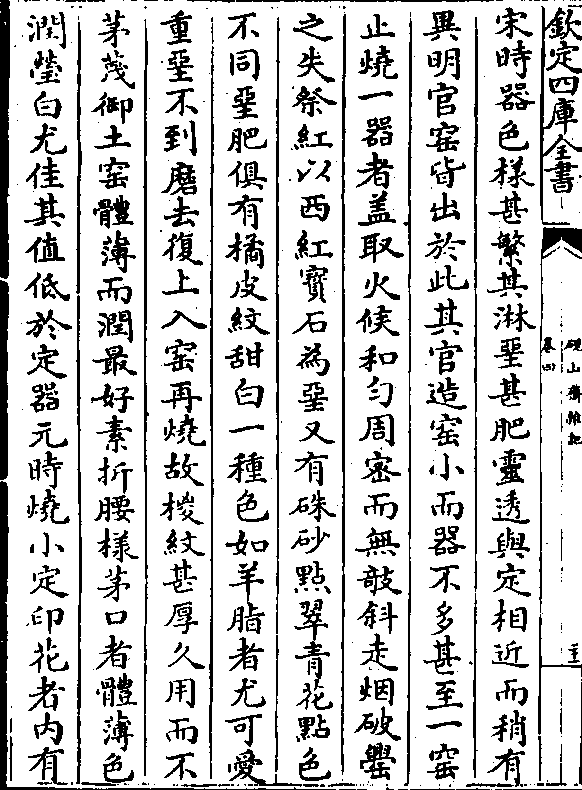 欽定四庫全書
硯山齋雜記
卷四
宋時器色樣甚繁其淋堊甚肥靈透與定相近而稍有
異明官窑皆出於此其官造窑小而器不多甚至一窑
止燒一器者盖取火候和匀周宻而無敧斜走烟破罍
之失祭紅以西紅寳石為堊又有硃砂點翠青花點色
不同堊肥俱有橘皮紋甜白一種色如羊脂者尤可愛
重堊不到磨去復上入窑再燒故椶紋甚厚久用而不
茅蔑御土窑體薄而潤最好素折腰樣茅口者體薄色
潤瑩白尤佳其值低於定器元時燒小定印花者内有